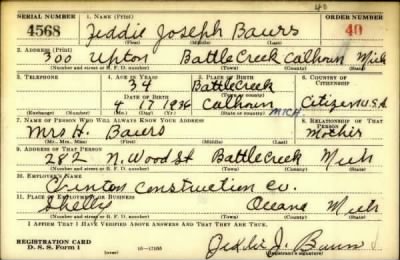 40
SERIAL NUMBER 1. NAME (Print) ORDER NUMBER
4568 Jeddie Joseph Bauers 40
(First) (Middle) (Last)
2. ADDRESS (Print)
300 Upton Battle Creek Calhoun Mich
(Number and street or R. F. D. number) (Town) (County) (State)
3. TELEPHONE 4. AGE IN YEARS 5. PLACE OF BIRTH 6. COUNTRY OF CITIZENSHIP
34 Battle Creek
DATE OF BIRTH (Town or county)
4 17 1906 Calhoun Citizen U.S.A
(Exchange) (Number) (Mo.) (Day) (Yr.) (State or country)
MICH.
7. NAME OF PERSON WHO WILL ALWAYS KNOW YOUR ADDRESS 8. RELATIONSHIP OF THAT PERSON
Mrs H. Bauers Mother
(Mr., Mrs., Miss) (First) (Middle) (Last)
9. ADDRESS OF THAT PERSON
282 N. Wood St Battle Creek Mich
(Number and street or R. F. D. number) (Town) (County) (State)
10. EMPLOYER'S NAME
Construction Co.
11. PLACE OF EMPLOYMENT OR BUSINESS
Shelby Oceana Mich
(Number and street or R. F. D. number) (Town) (County) (State)
I AFFIRM THAT I HAVE VERIFIED ABOVE ANSWERS AND THAT THEY ARE TRUE.
REGISTRATION CARD
D. S. S. Form 1 Jeddie J. Bauers
(Registrant's signature)